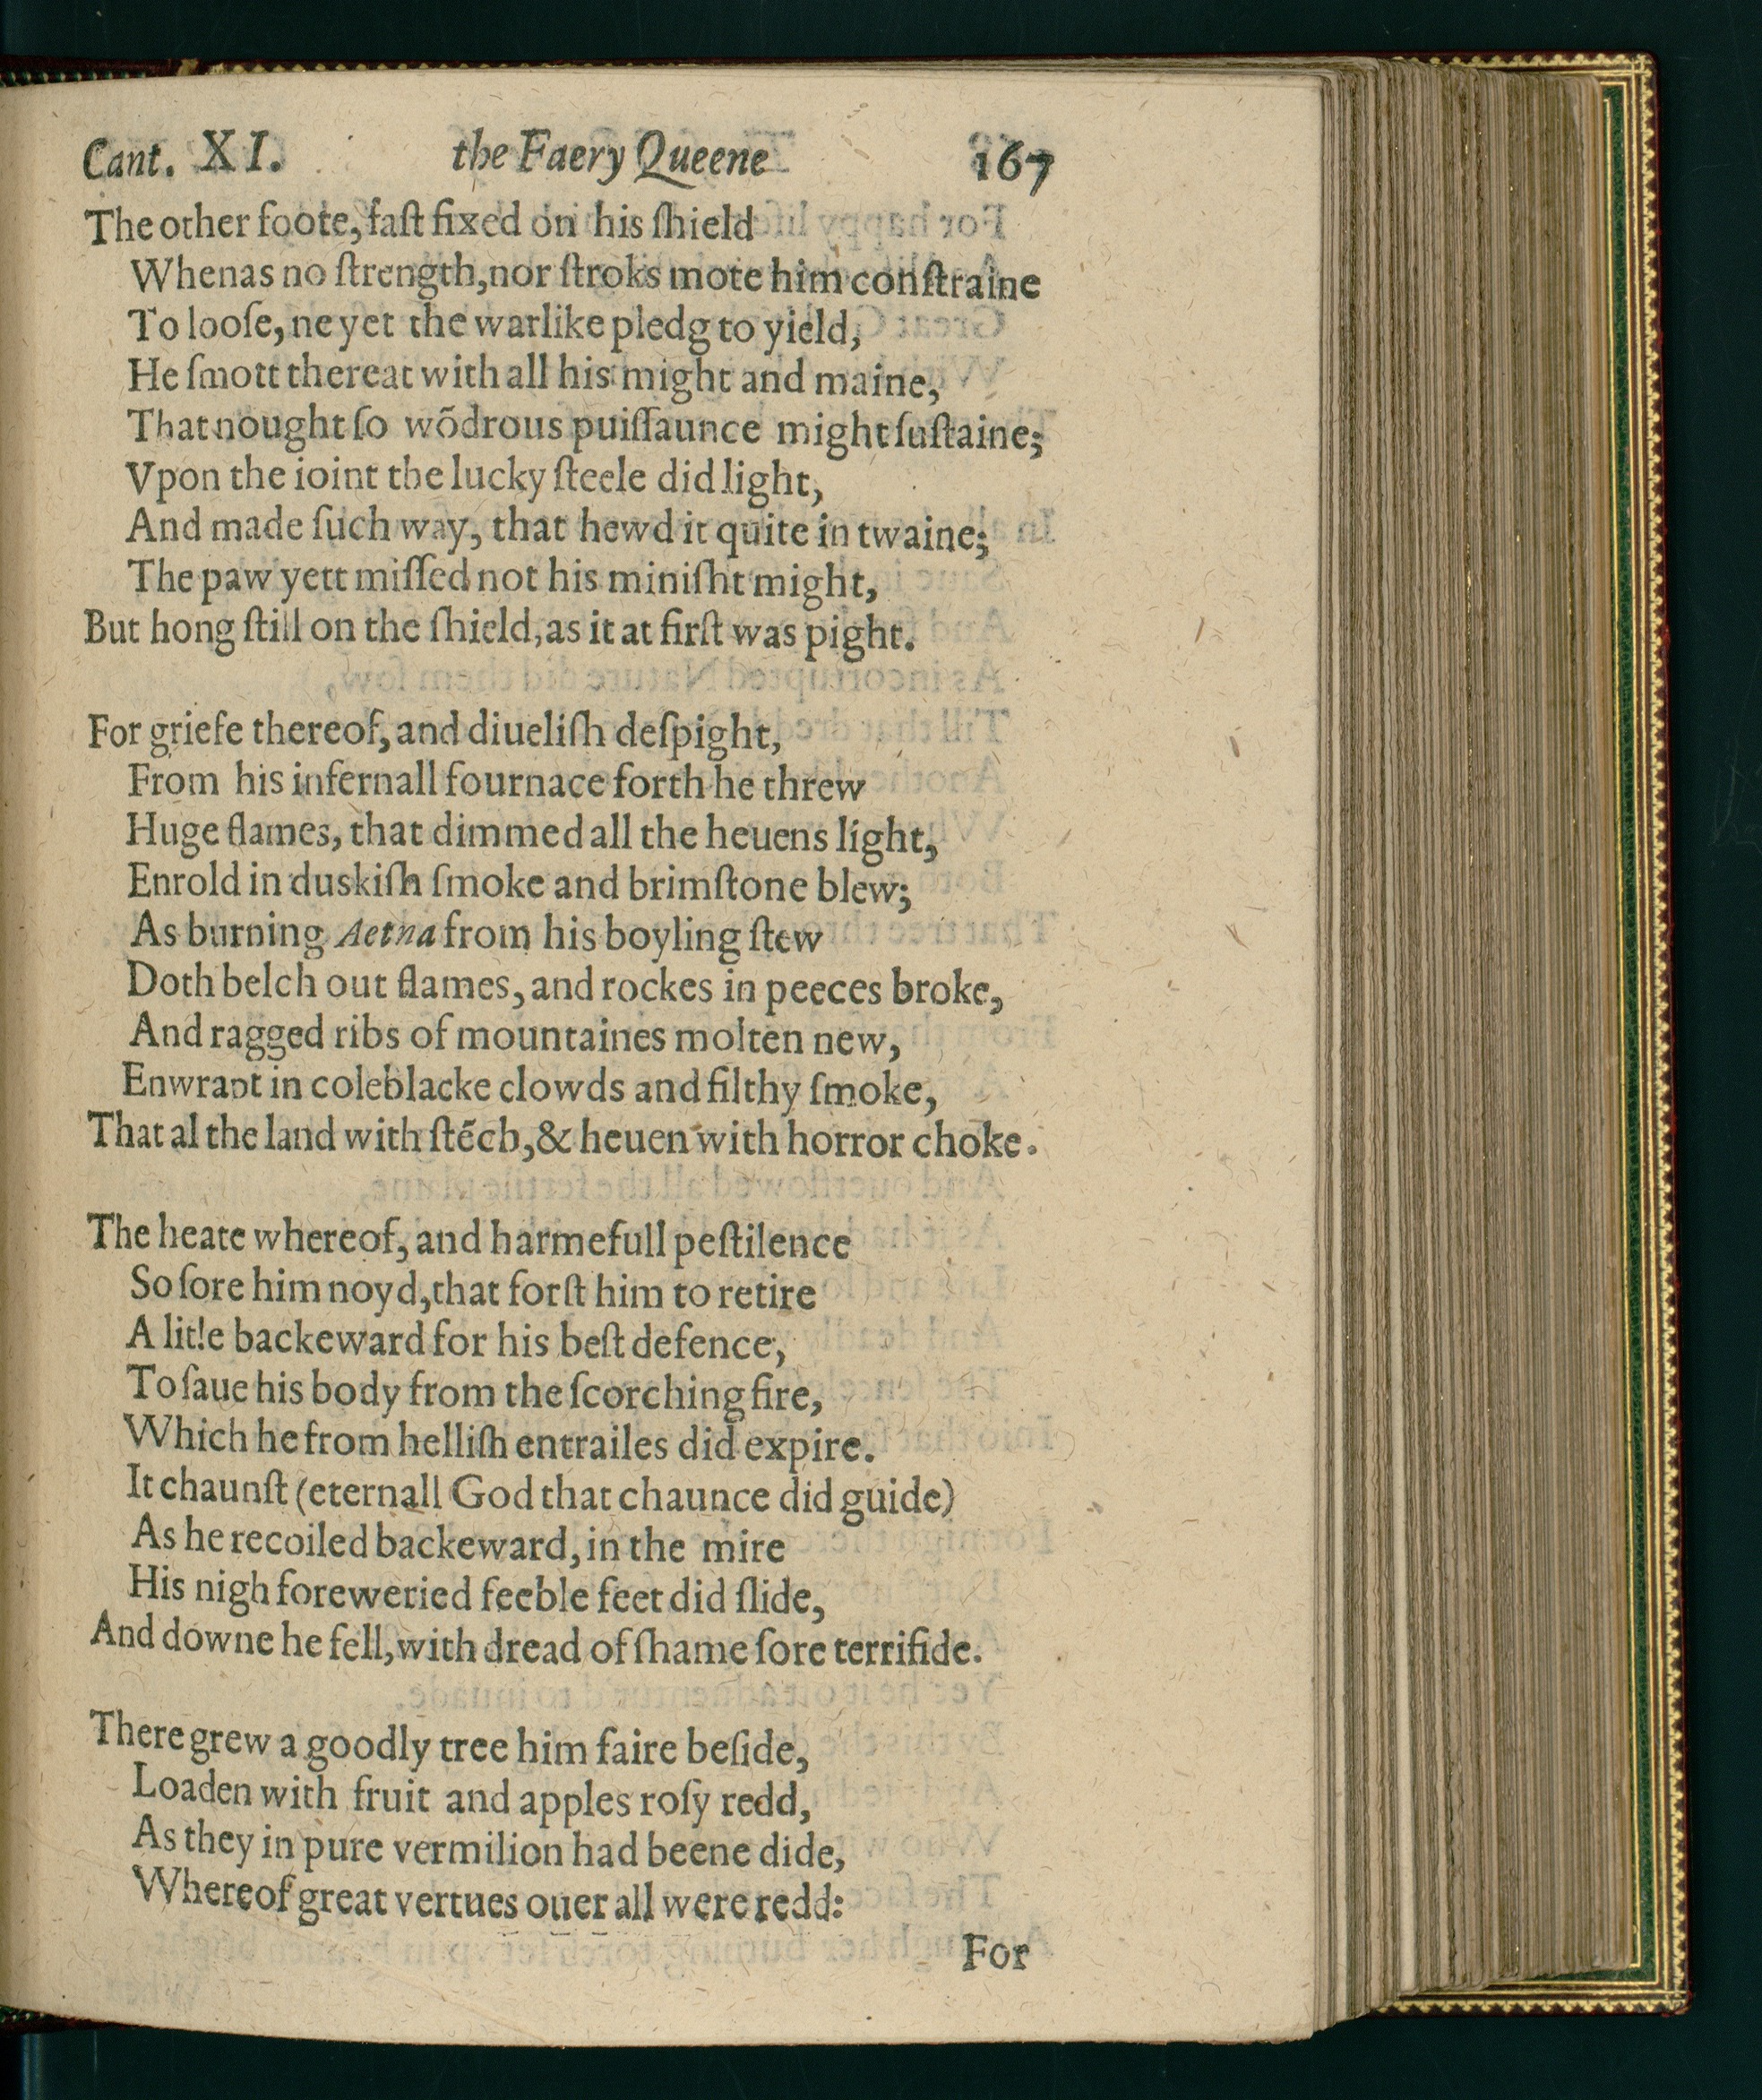 Cant. XI. the Faery Queene 167
The other foote, faſt fixed on his ſhield
Whenas no ſtrength, nor ſtroks mote him conſtraine
To looſe, ne yet the warlike pledg to yield,
He ſmott thereat with all his might and maine,
That nought ſo wõdrous puiſſaunce might ſuſtaine;
Vpon the ioint the lucky ſteele did light,
And made ſuch way, that hewd it quite in twaine;
The paw yett miſſed not his miniſht might,
But hong ſtill on the ſhield, as it at firſt was pight.
For griefe thereof, and diueliſh deſpight,
From his infernall fournace forth he threw
Huge flames, that dimmed all the heuens light,
Enrold in duskiſh ſmoke and brimſtone blew;
As burning Aetna from his boyling ſtew
Doth belch out flames, and rockes in peeces broke,
And ragged ribs of mountaines molten new,
Enwrapt in coleblacke clowds and filthy ſmoke,
That al the land with ſtẽch, & heuen with horror choke.
The heate whereof, and harmefull peſtilence
So ſore him noyd, that forſt him to retire
A litle backeward for his beſt defence,
To ſaue his body from the ſcorching fire,
Which he from helliſh entrailes did expire.
It chaunſt (eternall God that chaunce did guide)
As he recoiled backeward, in the mire
His nigh foreweried feeble feet did ſlide,
And downe he fell, with dread of ſhame ſore terrifide.
There grew a goodly tree him faire beſide,
Loaden with fruit and apples roſy redd,
As they in pure vermilion had beene dide,
Whereof great vertues ouer all were redd:
For